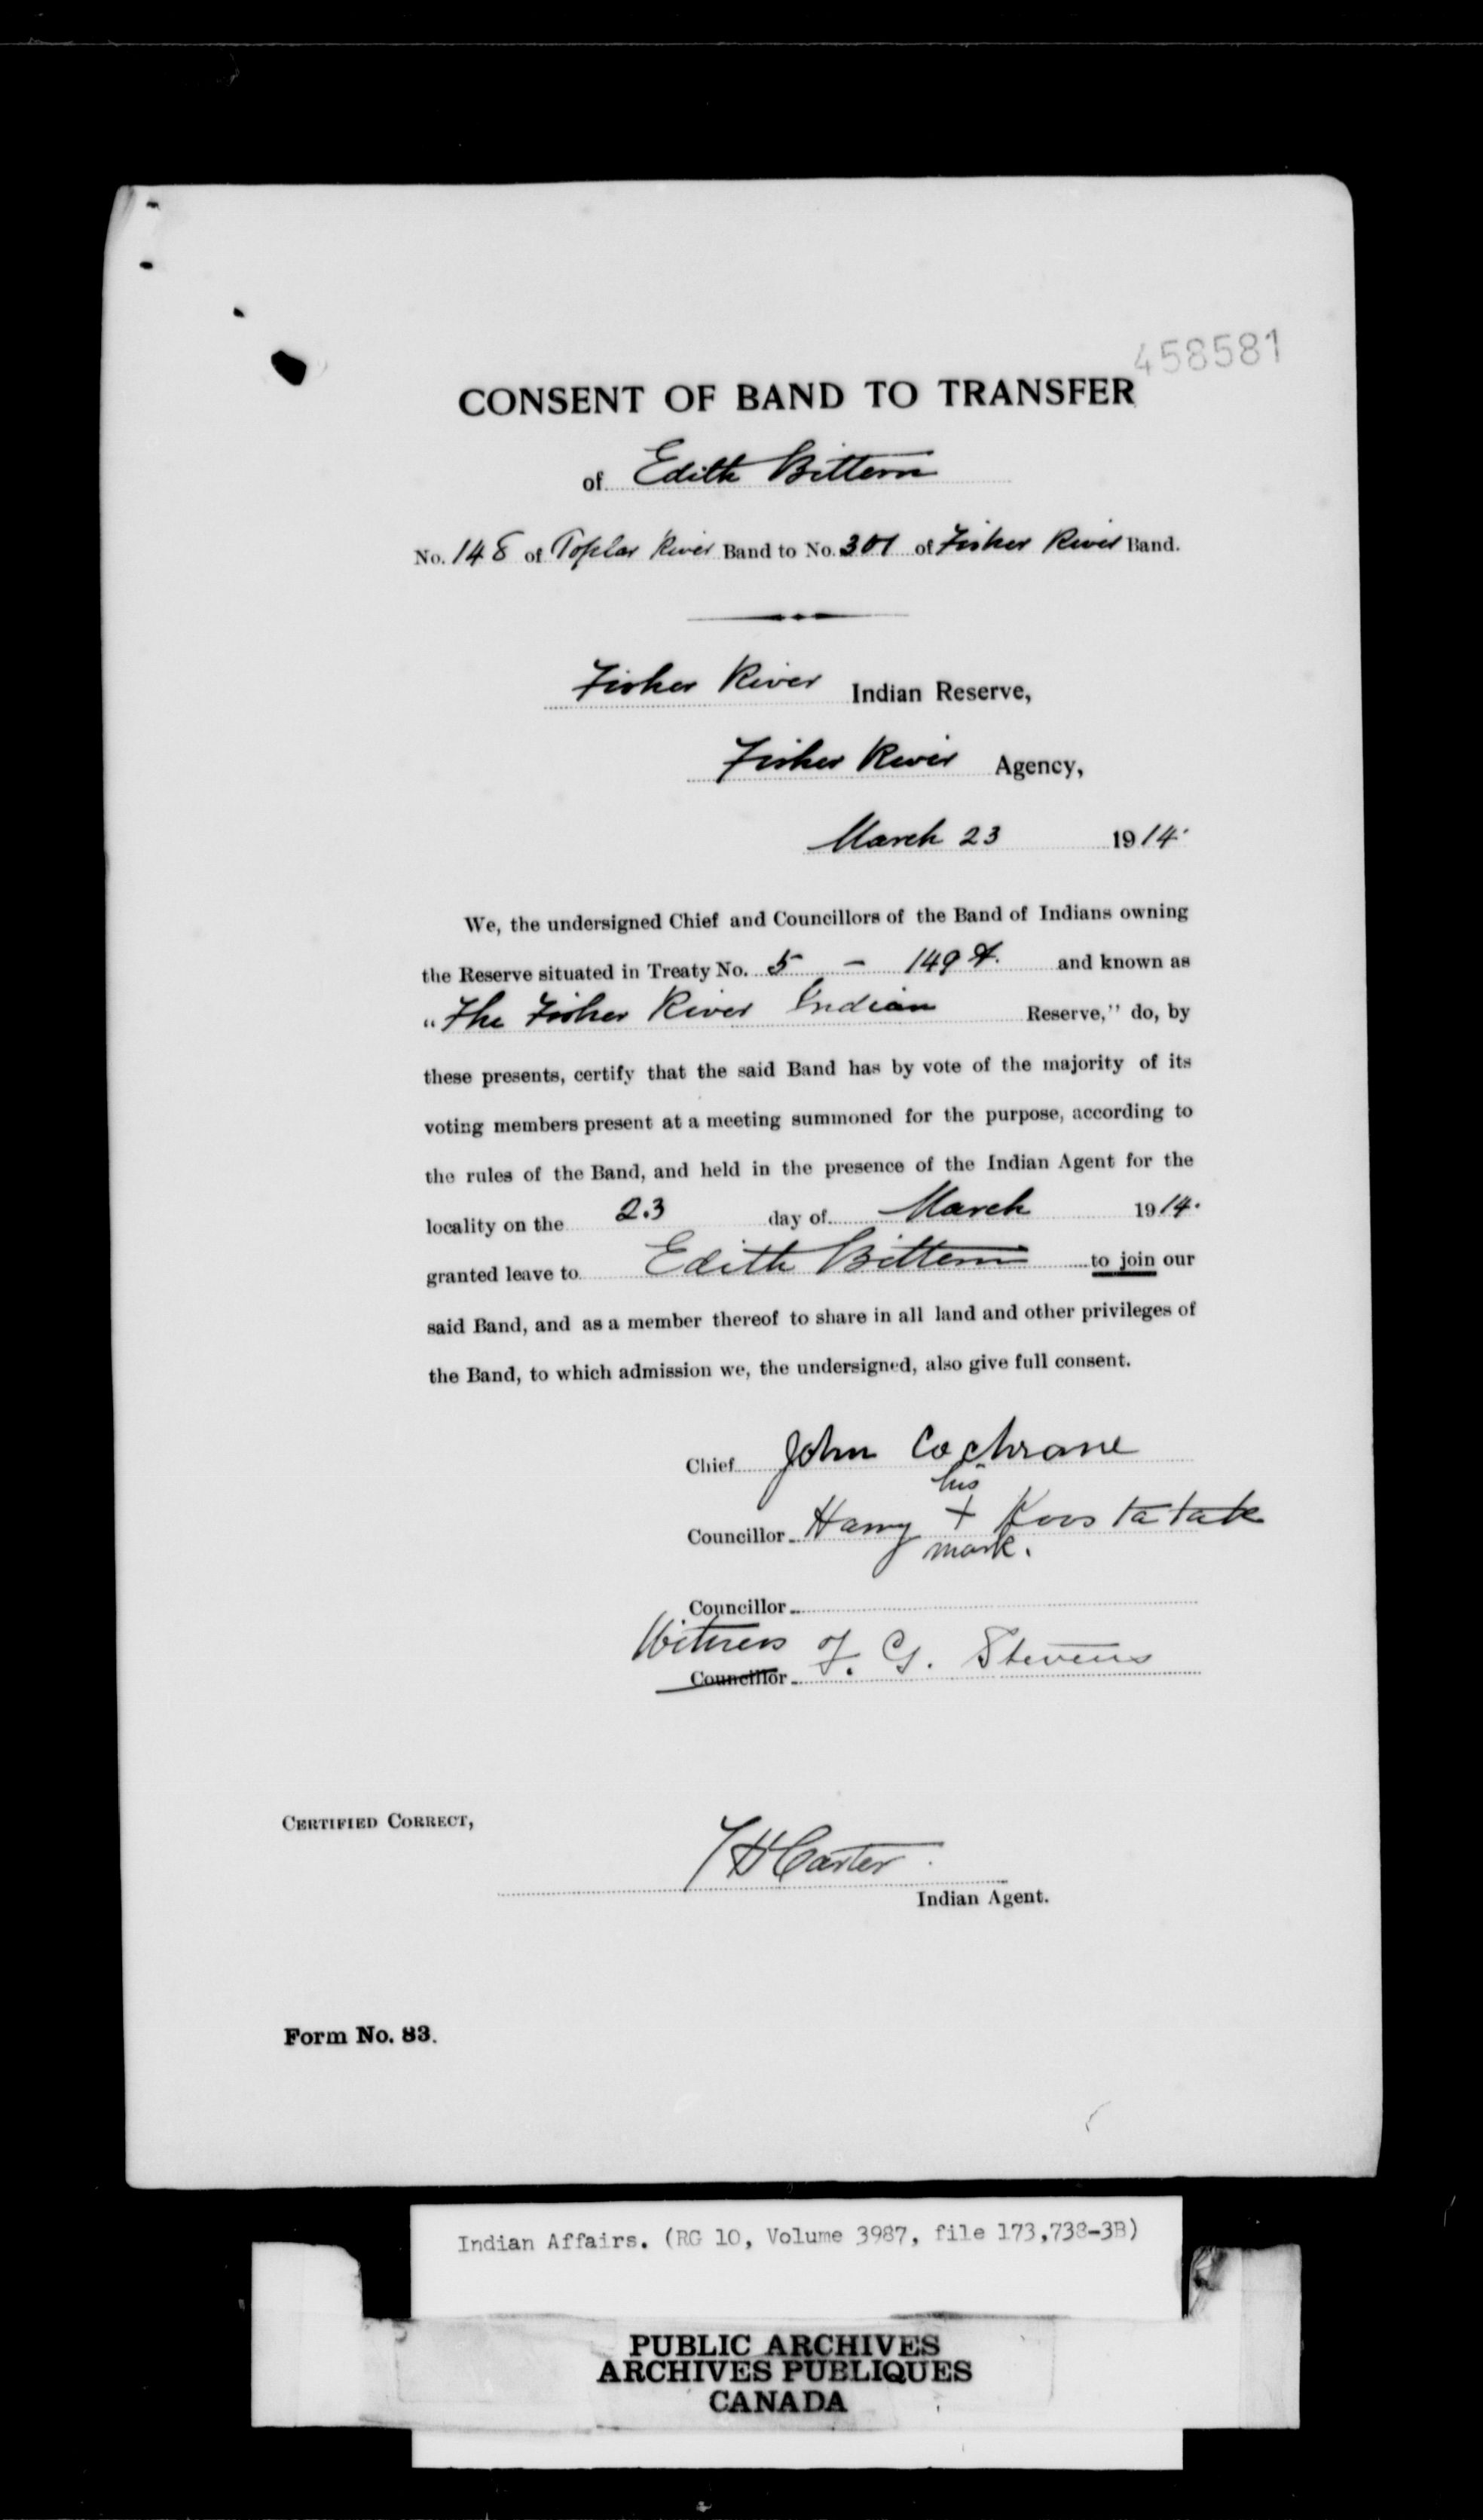 458581
CONSENT OF BAND TO TRANSFER
of Edith Bittern
No. 148 of Poplar River Band to No. 301 of Fisher River Band.
Fisher River Indian Reserve,
Fisher River Agency,
March 23 1914.
We, the undersigned Chief and Councillors of the Band of Indians owning
the Reserve situated in Treaty No. 5 – 149 and known as
"The Fisher River Indian Reserve," do, by
these presents, certify that the said Band has by vote of the majority of its
voting members present at a meeting summoned for the purpose, according to
the rules of the Band, and held in the presence of the Indian Agent for the
locality on the 23 day of March 1914.
granted leave to Edith Bittern to join our
said Band, and as a member thereof to share in all land and other privileges of
the Band, to which admission we, the undersigned, also give full consent.
Chief John Cochrane
his
Councillor Harry + Koostatak
mark.
Councillor
Witness F. G. Stevens
Councillor
CERTIFIED CORRECT,
T H Carter
Indian Agent.
Form No. 83.
Indian Affairs. (RG 10, Volume 3987, file 173,738-3B)
PUBLIC ARCHIVES
ARCHIVES PUBLIQUES
CANADA